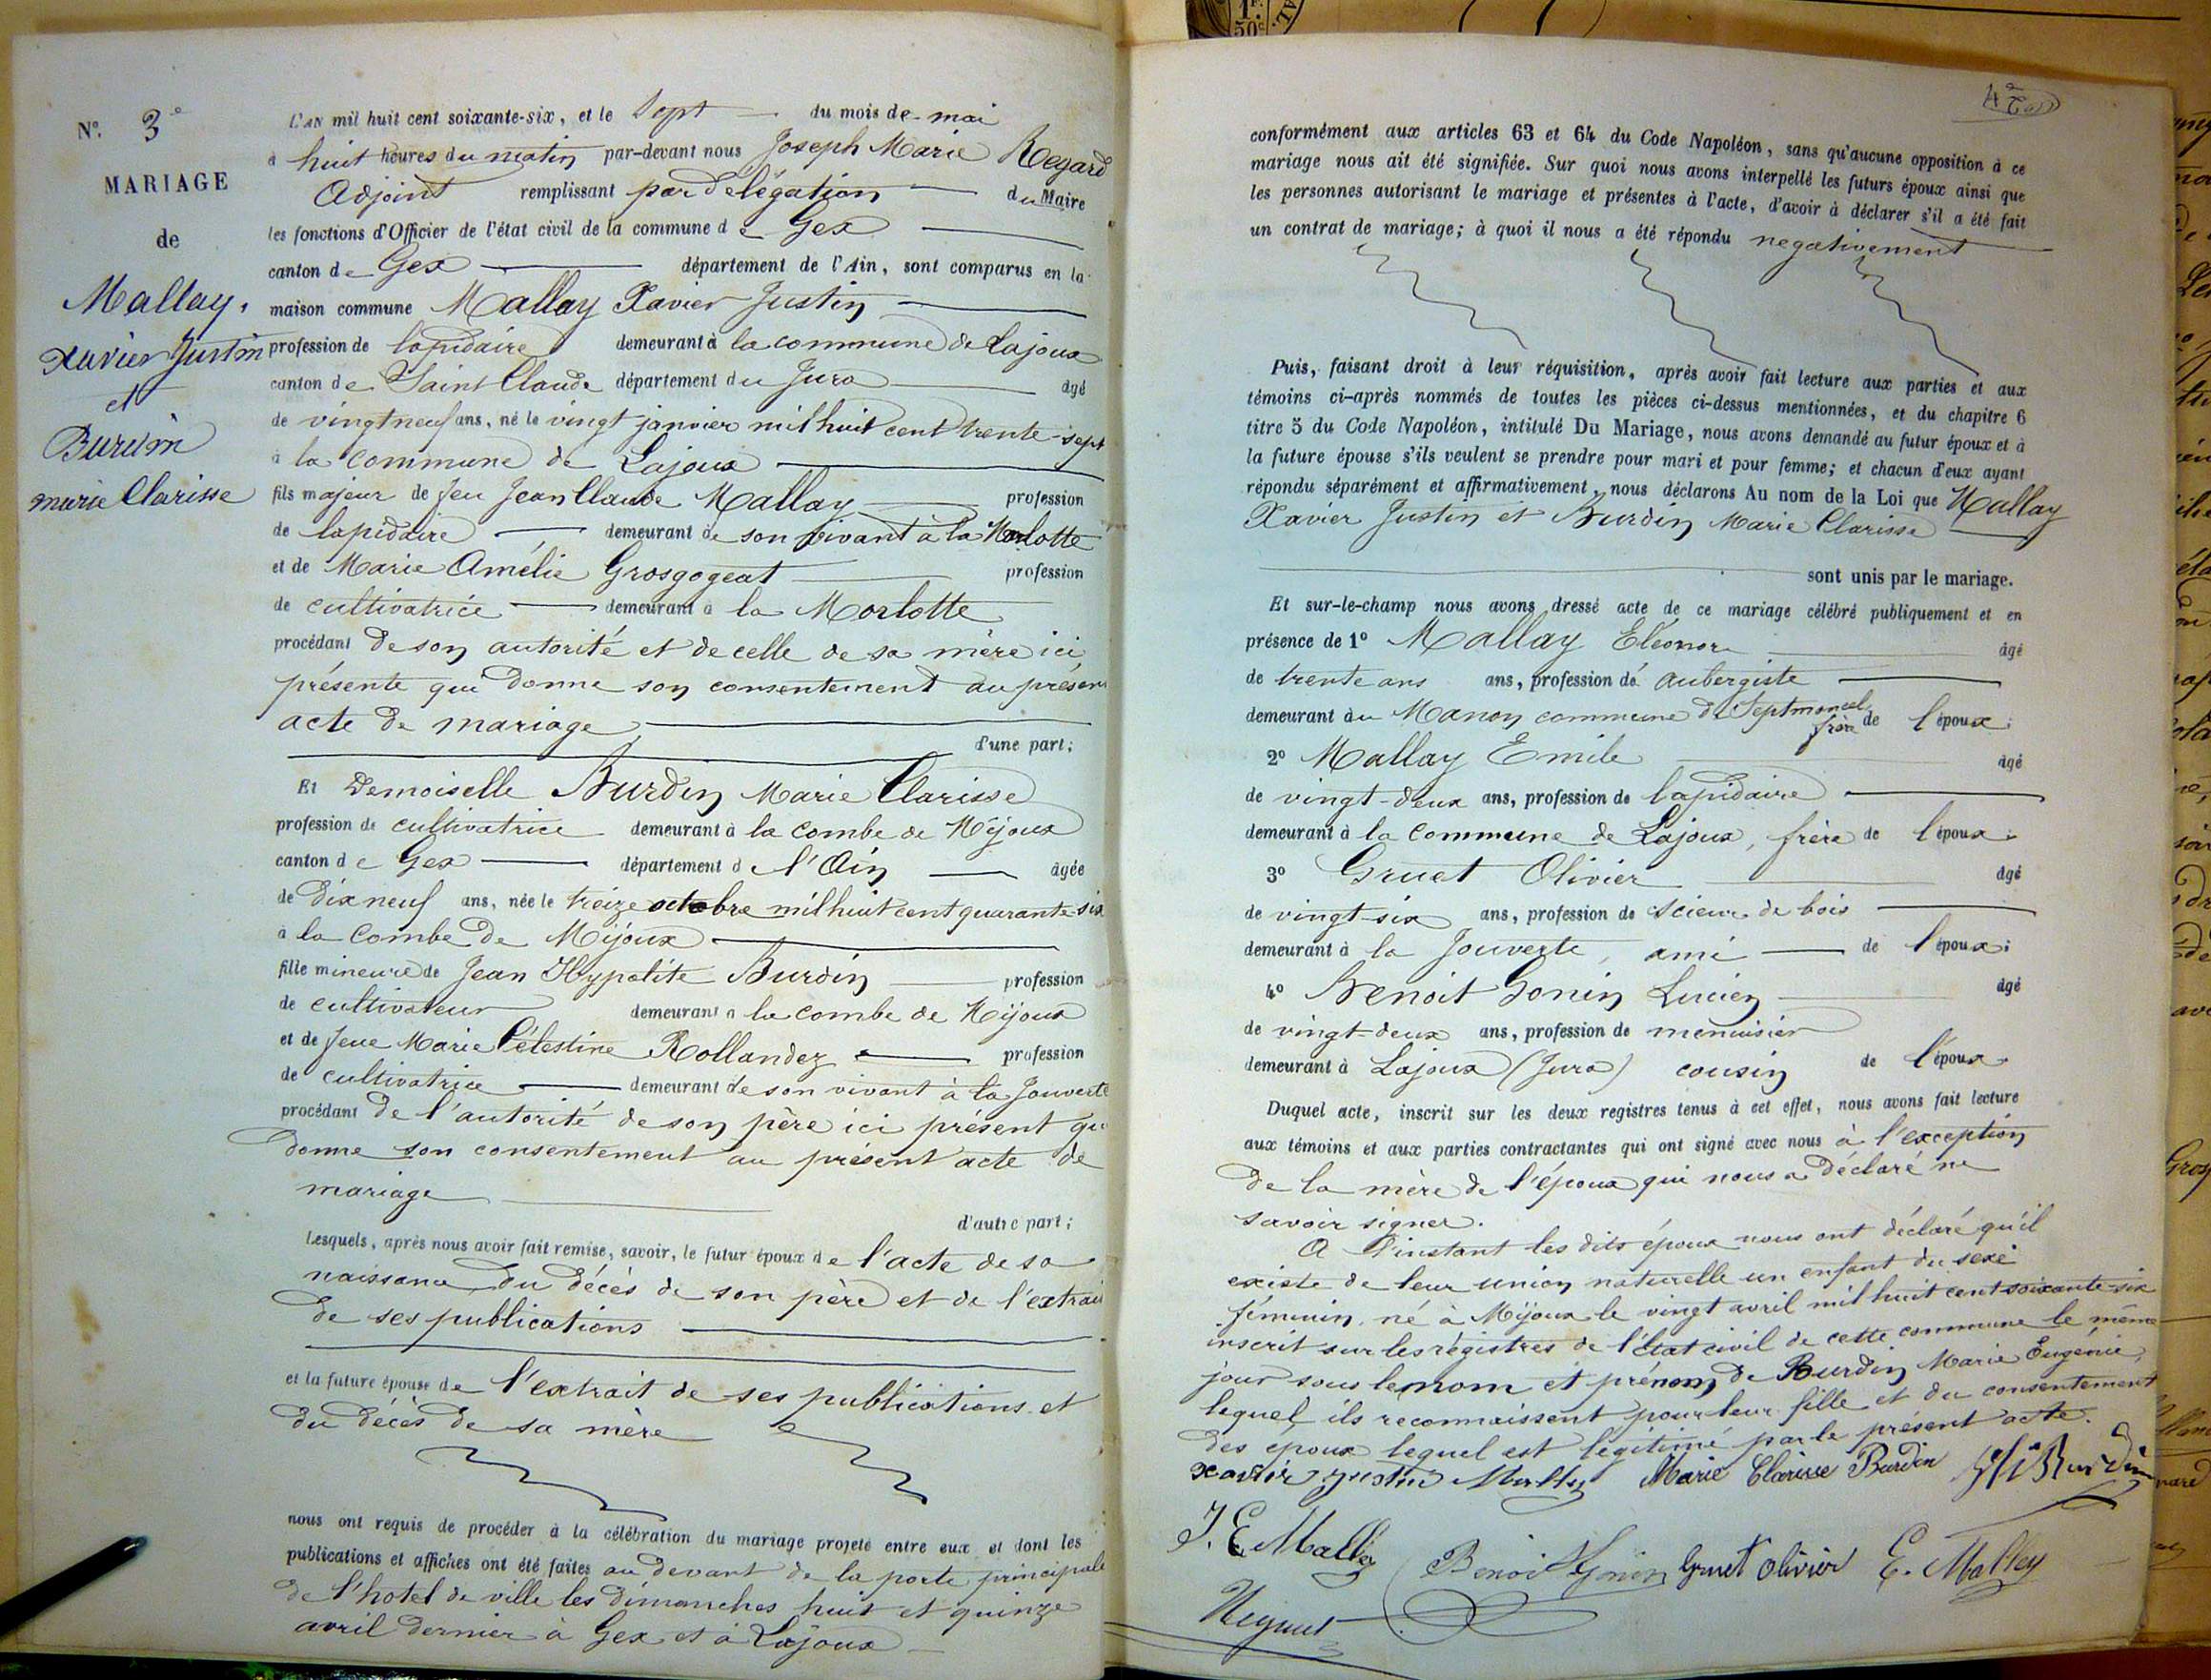 N°. 3e
MARIAGE
de
Mallay,
Xavier Justin
et
Burdin
marie Clarisse
L'AN mil huit cent soixante-six, et le Sept du mois de mai
à huit heures du matin par-devant nous Joseph Marie Regard
Adjoint remplissant par délégation du Maire
les fonctions d'Officier de l'état civil de la commune de Gex
canton de Gex département de l'Ain, sont comparus en la
maison commune Mallay Xavier Justin
profession de lapidaire demeurant à la commune de Lajoux
canton de Saint Claude département du Jura âgé
de vingt neuf ans, né le vingt janvier mil huit cent trente-sept
à la commune de Lajoux
fils majeur de feu Jean Claude Mallay profession
de lapidaire demeurant de son vivant à la Morlotte
et de Marie Amélie Grosgogeat profession
de cultivatrice demeurant à la Morlotte
procédant de son autorité et de celle de sa mère ici
présente qui donne son consentement au présent
acte de mariage
d'une part;
Et Demoiselle Burdin Marie Clarisse
profession de cultivatrice demeurant à la combe de Mijoux
canton de Gex département de l'Ain âgée
de dix neuf ans, née le treize octobre mil huit cent quarante-six
à la Combe de Mijoux
fille mineure de Jean Hypolite Burdin profession
de cultivateur demeurant à la combe de Mijoux
et de feue Marie Célestine Rollandez profession
de cultivatrice demeurant de son vivant à la Jouverte
procédant de l'autorité de son père ici présent qui
donne son consentement au présent acte de
mariage
d'autre part;
Lesquels, après nous avoir fait remise, savoir, le futur époux de l'acte de sa
naissance du décès de son père et de l'extrait
de ses publications
et la future épouse de l'extrait de ses publications et
du décès de sa mère
nous ont requis de procéder à la célébration du mariage projeté entre eux et dont les
publications et affiches ont été faites au devant de la porte principale
de l'hotel de ville les dimanches huit et quinze
avril dernier à Gex et à Lajoux
conformément aux articles 63 et 64 du Code Napoléon, sans qu'aucune opposition à ce
mariage nous ait été signifiée. Sur quoi nous avons interpellé les futurs époux ainsi que
les personnes autorisant le mariage et présentes à l'acte, d'avoir à déclarer s'il a été fait
un contrat de mariage; à quoi il nous a été répondu negativement
Puis, faisant droit à leur réquisition, après avoir fait lecture aux parties et aux
témoins ci-après nommés de toutes les pièces ci-dessus mentionnées, et du chapitre 6
titre 5 du Code Napoléon, intitulé Du Mariage, nous avons demandé au futur époux et à
la future épouse s'ils veulent se prendre pour mari et pour femme; et chacun d'eux ayant
répondu séparément et affirmativement, nous déclarons Au nom de la Loi que Mallay
Xavier Justin et Burdin Marie Clarisse
sont unis par le mariage.
Et sur-le-champ nous avons dressé acte de ce mariage célébré publiquement et en
présence de 1° Mallay Eléonor âgé
de trente ans ans, profession de aubergiste
demeurant au Manon commune de Septmoncel frère de l'époux;
2° Mallay Emile âgé
de vingt-deux ans, profession de lapidaire
demeurant à la commune de Lajoux, frère de l'époux;
3° Gruet Olivier âgé
de vingt-six ans, profession de scieur de bois
demeurant à la Jouverte, ami de l'époux;
4° Benoit Gonin Lucien âgé
de vingt-deux ans, profession de menuisier
demeurant à Lajoux (Jura) cousin de l'époux.
Duquel acte, inscrit sur les deux registres tenus à cet effet, nous avons fait lecture
aux témoins et aux parties contractantes qui ont signé avec nous à l'exception
de la mère de l'époux qui nous a déclaré ne
savoir signer.
A l'instant les dits époux nous ont déclaré qu'il
existe de leur union naturelle un enfant du sexe
féminin né à Mijoux le vingt avril mil huit cent soixante-six
inscrit sur les régistres de l'état civil de cette commune le même
jour sous le nom et prénom de Burdin Marie Eugénie,
lequel ils reconnaissent pour leur fille et du consentement
des époux lequel est légitimé par le présent acte.
xavier justin Mallay Marie Clarisse Burdin Burdin
J. E. Mallay Benoit Gonin Gruet Olivier E. Mallay